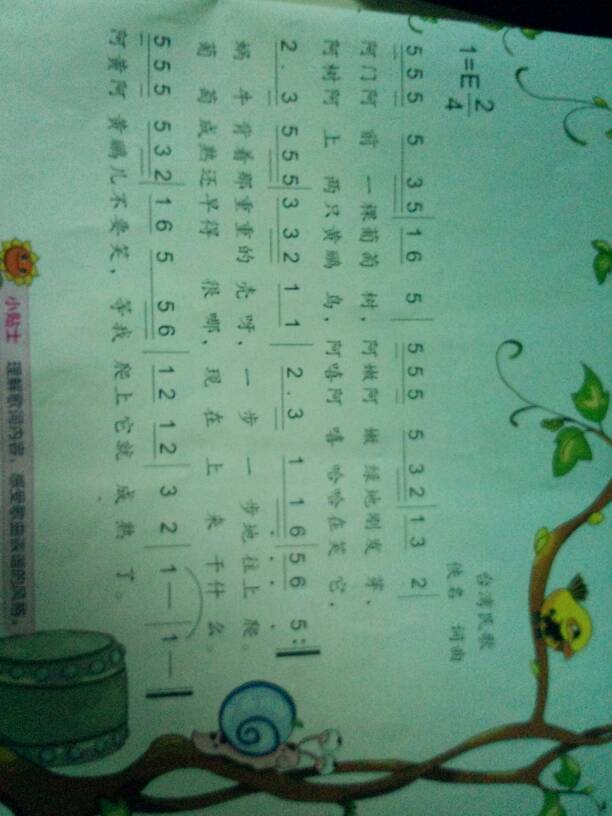 1=E 2/4
台湾民歌
佚名 词曲
5 5 5 5 3 5 | 1 6 5 | 5 5 5 5 3 2 | 1 3 2 |
阿门阿 前 一棵葡萄 树，阿嫩阿 嫩 绿地刚发 芽，
阿树阿 上 两只黄鹂 鸟，阿嘻阿 嘻 哈哈在笑 它，
2 . 3 5 5 5 | 3 3 2 1 1 | 2 . 3 1 1 6 | 5 6 5 :‖
蜗 牛 背着那重重的 壳 呀，一 步 一 步地 往上 爬。
葡 萄 成熟还早得 很 哪，现 在 上 来 干什 么。
5 5 5 5 3 2 | 1 6 5 5 6 | 1 2 1 2 | 3 2 | 1 — | 1 — ‖
阿黄阿 黄鹂儿不要笑，等我 爬上它就 成 熟 了。
小贴士 理解歌词内容，感受歌曲诙谐的风格。